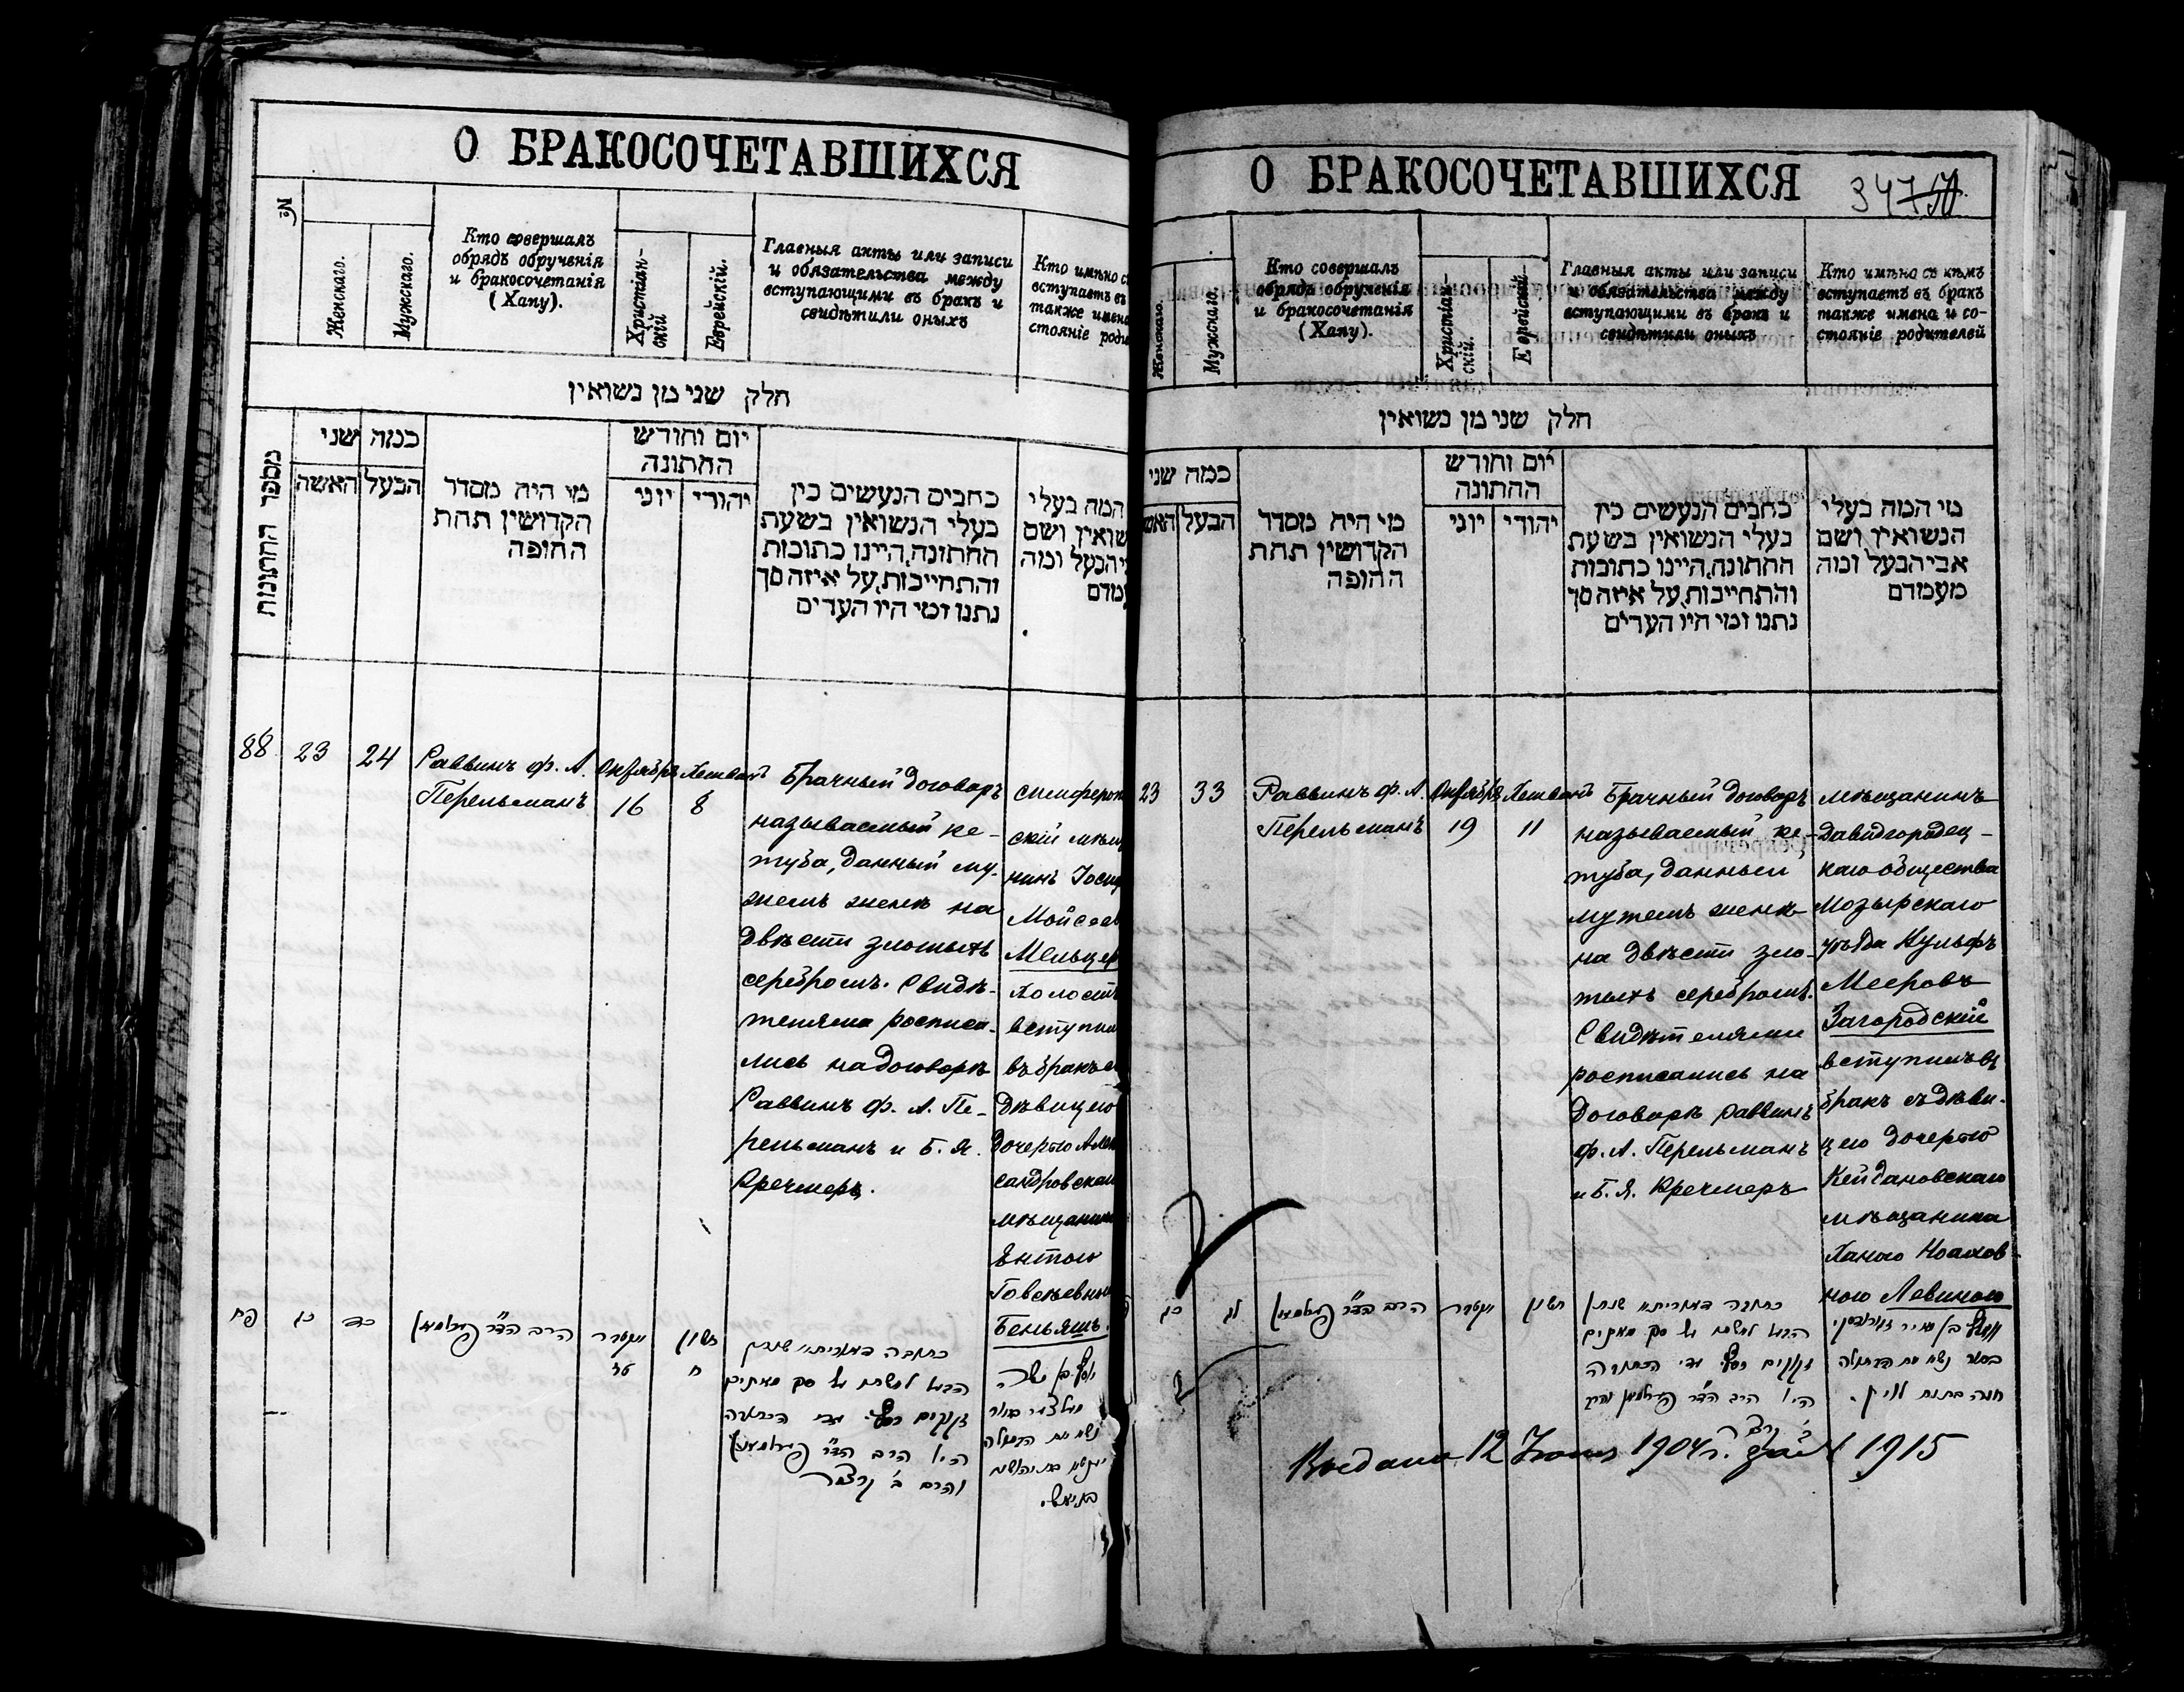 О БРАКОСОЧЕТАВШИХСЯ
№
Женскаго.
Мужскаго.
Кто совершалъ
обрядъ обрученія
и бракосочетанія
(Хапу).
Христіан-
скій
Еврейскій.
Главныя акты или записи
и обязательства между
вступающими въ бракъ и
свидѣтили оныхъ
Кто имѣно съ
вступаетъ въ
также имена
стояніе роди
חלק שני מן נשואין
מספר החתונות
כמה שני
האשה
הבעל
מי היה מסדר
הקדושין תחת
החופה
יום וחודש
החתונה
יוני
יהודי
כתבים הנעשים בין
בעלי הנשואין בשעת
החתונה, היינו כתובות
והתחייבות, על איזה סך
נתנו ומי היו העדים
המה בעלי
שואין ושם
יהבעל ומה
עמדם
88
23
24
Раввинъ ф. А.
Перельманъ
Октябрь
16
Хешванъ
8
Брачный договоръ
называемый ке-
туба, данный му-
жемъ женѣ на
двѣсти злотыхъ
серебромъ. Свидѣ-
телями росписа-
лись на договорѣ
Раввинъ ф. А. Пе-
рельманъ и Б. Я.
Кречмеръ.
симфероп
скій мѣщ
нинъ Іосиф
Мойсеев
Мельцер
холостъ
вступил
въ бракъ с
дѣвицею
дочерью Алек
сандровскаго
мѣщанина
Ентою
Говсѣевною
Беньяшъ.
פח
כג
כד
הרב הד"ר פערלמאן
אקטבר
טז
חשון
ח
כתובה דאורייתא שנתן
הבעל לאשתו על סך מאתים
זקוקים כסף. עדי הכתובה
היו הרב הד"ר פערלמאן
והרב ב' קרצמר
יוסף בן משה
מעלצער בחור
נשא את הבתולה
יענטא בת יהושע
בניאש.
О БРАКОСОЧЕТАВШИХСЯ
347
Женскаго.
Мужскаго.
Кто совершалъ
обрядъ обрученія
и бракосочетанія
(Хапу).
Христіан-
скій.
Еврейскій.
Главныя акты или записи
и обязательства между
вступающими въ бракъ и
свидѣтили оныхъ
Кто имѣно съ кѣмъ
вступаетъ въ бракъ
также имена и со-
стояніе родителей
חלק שני מן נשואין
כמה שני
האשה
הבעל
מי היה מסדר
הקדושין תחת
החופה
יום וחודש
החתונה
יוני
יהודי
כתבים הנעשים בין
בעלי הנשואין בשעת
החתונה, היינו כתובות
והתחייבות, על איזה סך
נתנו ומי היו העדים
מי המה בעלי
הנשואין ושם
אבי הבעל ומה
מעמדם
23
33
Раввинъ ф. А.
Перельманъ
Октябрь
19
Хешванъ
11
Брачный договоръ
называемый ке-
туба, данный
мужемъ женѣ
на двѣсти зло-
тыхъ серебромъ.
Свидѣтелями
росписались на
договорѣ раввинъ
ф. А. Перельманъ
и Б. Я. Кречмеръ
мѣщанинъ
Давидгородец-
каго общества
Мозырскаго
уѣзда Вульфъ
Мееровъ
Загородскій
вступилъ въ
бракъ съ дѣви-
цею дочерью
Кейдановскаго
мѣщанина
Ханою Ноахов-
ною Левиною
כג
לג
הרב הד"ר פערלמאן
אקטבר
חשון
כתובה דאורייתא שנתן
הבעל לאשתו על סך מאתים
זקוקים כסף. עדי הכתובה
היו הרב הד"ר פערלמאן והרב
ב' קרצמר
וואלף בן מאיר זאגאראדסקי
בחור נשא את הבתולה
חנה בת נח לוין.
Выдана 12 Іюня 1904 г. за № 1915